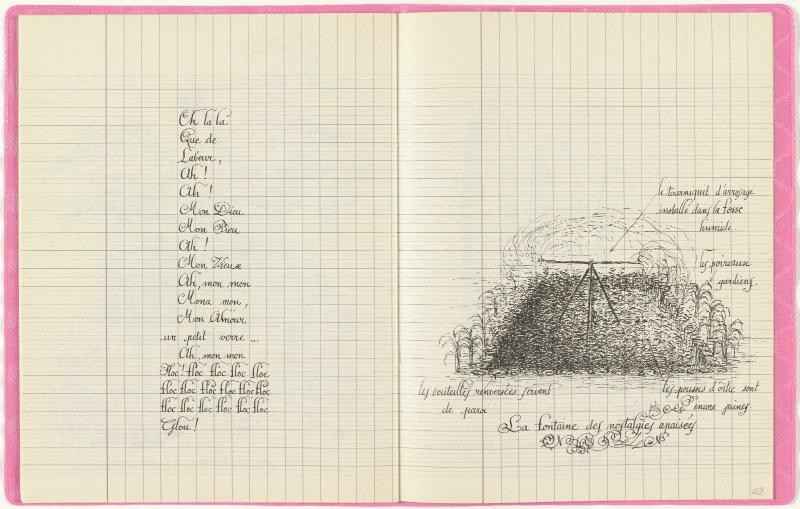 Oh la la
Que de
Labeur,
Ah !
Ah !
Mon Dieu
Mon Pieu
Ah !
Mon Vieux
Ah, mon mon
Mona mon,
Mon Amour
un petit verre ...
Ah, mon mon
Floc ! floc floc floc floc
floc floc floc floc floc floc
floc floc floc floc floc floc
Glou !
le tourniquet d'arrosage
installé dans la fosse
humide.
les poireaux
gardiens.
les bouteilles renversées servent
de paroi
les pousses d'ortie sont
encore jaunes
La fontaine des nostalgies apaisées
29